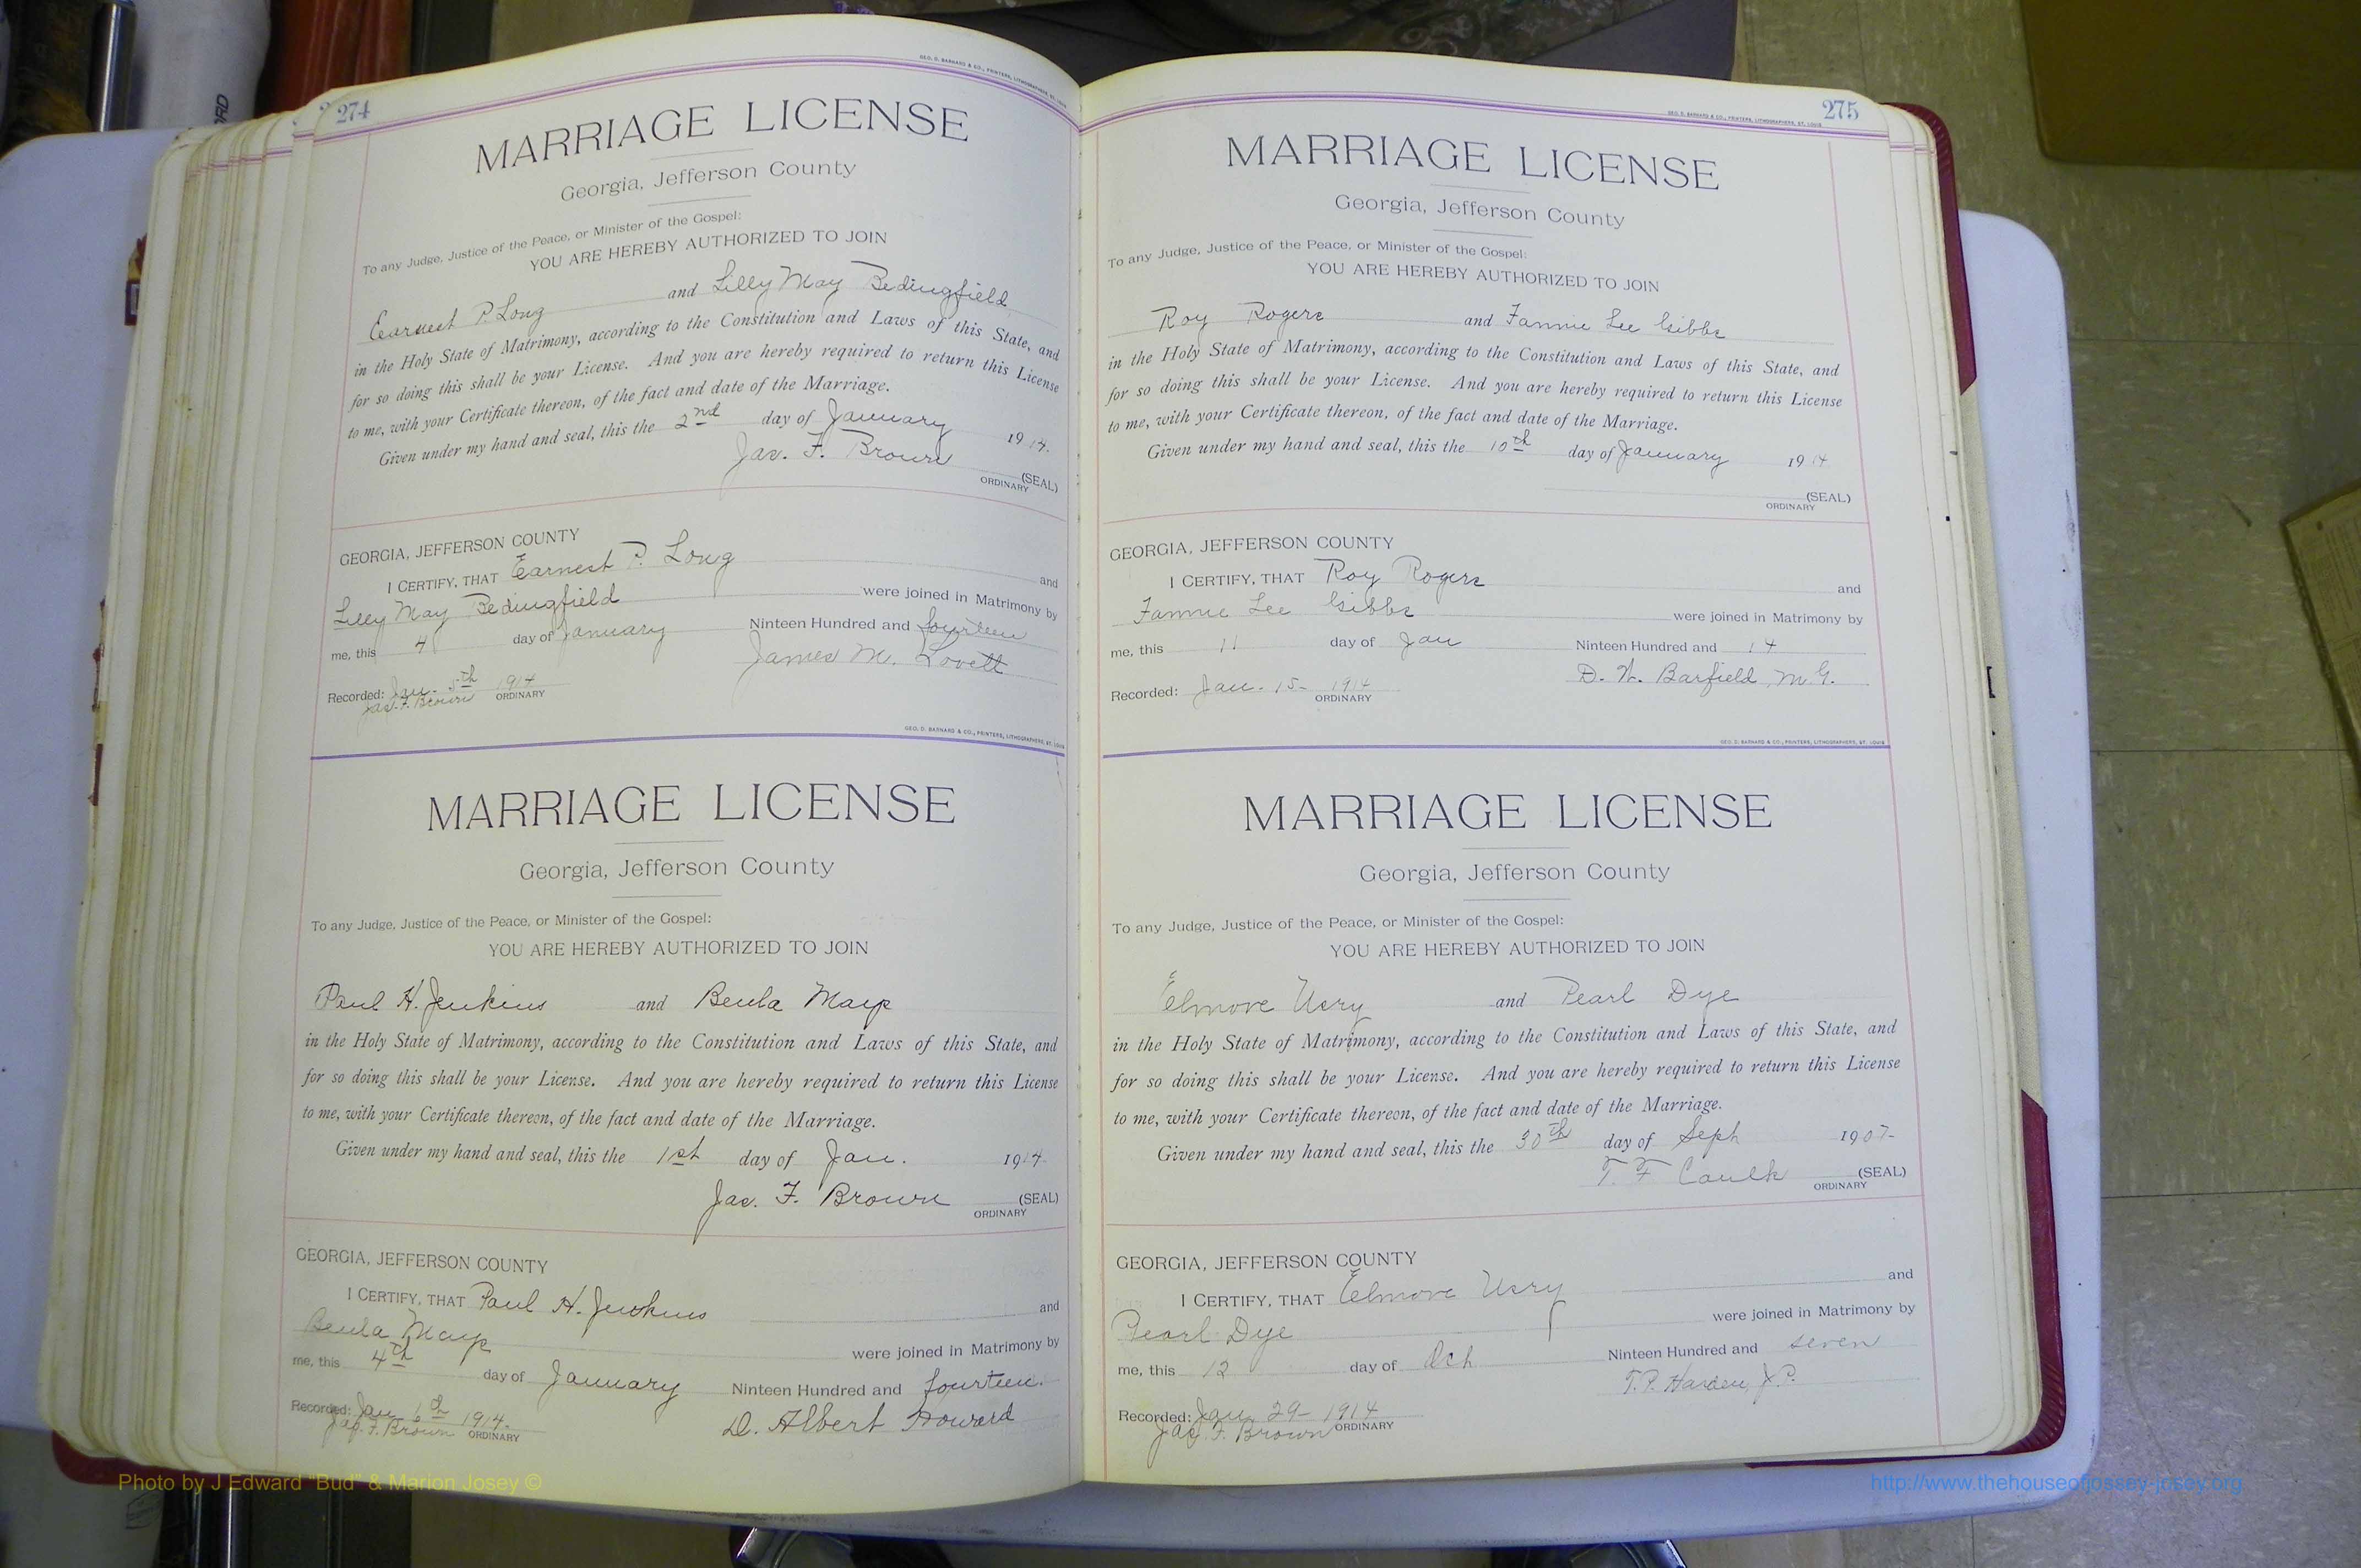 274
GEO. D. BARNARD & CO., PRINTERS, LITHOGRAPHERS, ST. LOUIS
MARRIAGE LICENSE
Georgia, Jefferson County
To any Judge, Justice of the Peace, or Minister of the Gospel:
YOU ARE HEREBY AUTHORIZED TO JOIN
Earnest P. Long and Lilly May Bedingfield
in the Holy State of Matrimony, according to the Constitution and Laws of this State, and
for so doing this shall be your License. And you are hereby required to return this License
to me, with your Certificate thereon, of the fact and date of the Marriage.
Given under my hand and seal, this the 2nd day of January 1914.
Jas. F. Brown (SEAL)
ORDINARY
GEORGIA, JEFFERSON COUNTY
I CERTIFY, THAT Earnest P. Long and
Lilly May Bedingfield were joined in Matrimony by
me, this 4 day of January Ninteen Hundred and fourteen
James M. Lovett
Recorded: Jan. 5th 1914
Jas. F. Brown ORDINARY
GEO. D. BARNARD & CO., PRINTERS, LITHOGRAPHERS, ST. LOUIS
MARRIAGE LICENSE
Georgia, Jefferson County
To any Judge, Justice of the Peace, or Minister of the Gospel:
YOU ARE HEREBY AUTHORIZED TO JOIN
Paul H. Jenkins and Beula Mayp
in the Holy State of Matrimony, according to the Constitution and Laws of this State, and
for so doing this shall be your License. And you are hereby required to return this License
to me, with your Certificate thereon, of the fact and date of the Marriage.
Given under my hand and seal, this the 1st day of Jan. 1914
Jas. F. Brown (SEAL)
ORDINARY
GEORGIA, JEFFERSON COUNTY
I CERTIFY, THAT Paul H. Jenkins and
Beula were joined in Matrimony by
me, this 4th day of January Ninteen Hundred and fourteen.
D. Albert Howard
Recorded: Jan 1914.
Jas. F. Brown ORDINARY
275
GEO. D. BARNARD & CO., PRINTERS, LITHOGRAPHERS, ST. LOUIS
MARRIAGE LICENSE
Georgia, Jefferson County
To any Judge, Justice of the Peace, or Minister of the Gospel:
YOU ARE HEREBY AUTHORIZED TO JOIN
Roy Rogers and Fannie Lee Gibbs
in the Holy State of Matrimony, according to the Constitution and Laws of this State, and
for so doing this shall be your License. And you are hereby required to return this License
to me, with your Certificate thereon, of the fact and date of the Marriage.
Given under my hand and seal, this the 10th day of January 1914
(SEAL)
ORDINARY
GEORGIA, JEFFERSON COUNTY
I CERTIFY, THAT Roy Rogers and
Fannie Lee Gibbs were joined in Matrimony by
me, this 11 day of Jan Ninteen Hundred and 14
Barfield, M.G.
Recorded: Jan. 15- 1914
ORDINARY
GEO. D. BARNARD & CO., PRINTERS, LITHOGRAPHERS, ST. LOUIS
MARRIAGE LICENSE
Georgia, Jefferson County
To any Judge, Justice of the Peace, or Minister of the Gospel:
YOU ARE HEREBY AUTHORIZED TO JOIN
Elmore Usry and Pearl Dye
in the Holy State of Matrimony, according to the Constitution and Laws of this State, and
for so doing this shall be your License. And you are hereby required to return this License
to me, with your Certificate thereon, of the fact and date of the Marriage.
Given under my hand and seal, this the 30th day of Sept 1907-
T. F. Caulk (SEAL)
ORDINARY
GEORGIA, JEFFERSON COUNTY
I CERTIFY, THAT Elmore Usry and
Pearl Dye were joined in Matrimony by
me, this 12 day of Oct Ninteen Hundred and seven
T.P. Harden, J.P.
Recorded: Jan. 29- 1914
Jas. F. Brown ORDINARY
Photo by J Edward "Bud" & Marion Josey ©
http://www.thehouseofjossey-josey.org